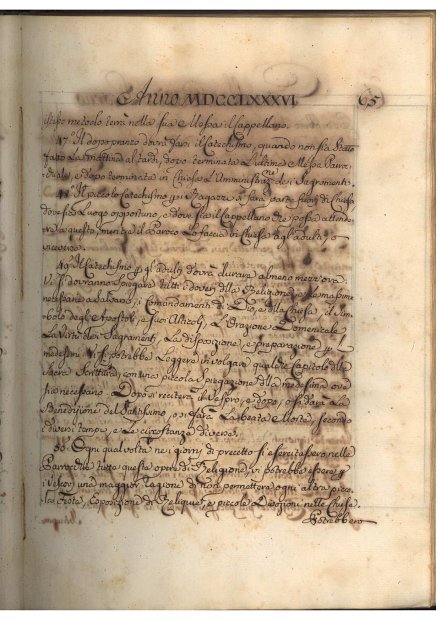 Anno MDCCLXXXVI. 65
stesso metodo terrà nella sua Messa il Cappellano.
47.° Il dopo pranzo dovrà farsi il Catechismo, quando non sia stato
fatto la mattina al tardi, dopo terminata l'ultima Messa Parro-
chiale, e dopo terminata in Chiesa l'Amministraz.ne de i Sagramenti.
48.° Il piccolo Catechismo p i Ragazzi si farà parte fuori di Chiesa
dove sia Luogo opportuno, e dove sia il Cappellano che possa attende-
re a questo, mentre il Parroco lo faccia in Chiesa agl'adulti, o
viceversa.
49. Il Catechismo p gl'adulti dovrà durare almeno mezz'ora.
Vi si dovranno spiegare tutti i doveri della Religione, e le massime
necessarie a salvarsi, i Comandamenti di Dio, e della Chiesa, il Sim-
bolo degl'Apostoli, e suoi Articoli, l'Orazione Domenicale
La Virtù dei Sagramenti, La disposizione, e preparazione p i
medesimi. Vi si potrebbe Leggere in volgare qualche Capitolo della
Sacra Scrittura, con una piccola spiegazione della medesima ove
sia necessario. Dopo si reciterà il Vespro, e dopo, o si darà La
Benedizione del Santissimo, o si farà La beata Morte, secondo
i diversi tempi, e Le circostanze diverse.
50. Ogni qual volta nei giorni di precetto si esercitassero nelle
Parrocchie tutte queste opere di Religione, vi potrebbe essere p
i Vescovi una maggior ragione di non permettere ogni altra picco-
la Festa, Esposizione di Reliquie, e piccole Devozioni nelle Chiese.
Potrebbero